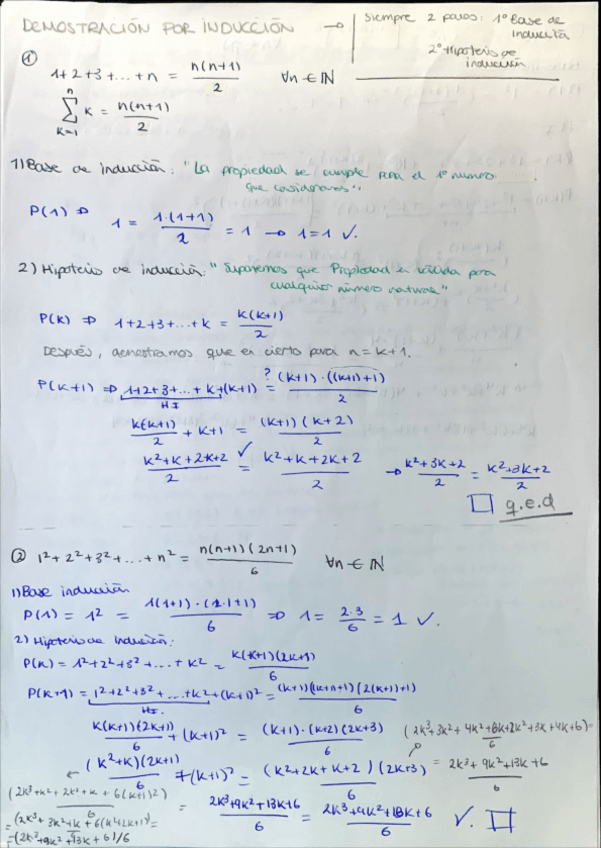 DEMOSTRACIÓN POR INDUCCIÓN → Siempre 2 pasos: 1º Base de
inducción
2º Hipótesis de
inducción
①
1+2+3+...+n = n(n+1)/2 ∀n ∈ ℕ
∑_{k=1}^{n} k = n(n+1)/2
1) Base de inducción: "La propiedad se cumple para el 1º número
que consideramos".
P(1) ⇒ 1 = 1·(1+1)/2 = 1 → 1=1 ✓.
2) Hipótesis de inducción: "Suponemos que Propiedad es válida para
cualquier número natural"
P(k) ⇒ 1+2+3+...+k = k(k+1)/2
Después, demostramos que es cierto para n=k+1.
P(k+1) ⇒ 1+2+3+...+k+(k+1) =? (k+1)·((k+1)+1)/2
H I
k(k+1)/2 + k+1 = (k+1)(k+2)/2
k²+k+2k+2/2 =✓ k²+k+2k+2/2 → k²+3k+2/2 = k²+3k+2/2
□ q.e.d
② 1²+2²+3²+...+n² = n(n+1)(2n+1)/6 ∀n ∈ ℕ
1) Base inducción
P(1) = 1² = 1(1+1)·(2·1+1)/6 ⇒ 1 = 2·3/6 = 1 ✓.
2) Hipótesis de inducción:
P(k) = 1²+2²+3²+...+k² = k(k+1)(2k+1)/6
P(k+1) = 1²+2²+3²+...+k²+(k+1)² = (k+1)((k+1)+1)(2(k+1)+1)/6
H.I.
k(k+1)(2k+1)/6 + (k+1)² = (k+1)·(k+2)(2k+3)/6 (2k³+3k²+4k²+6k+2k²+3k+4k+6)/6 =
(k²+k)(2k+1)/6 + (k+1)² = (k²+2k+k+2)(2k+3)/6 = 2k³+9k²+13k+6/6
(2k³+k²+2k²+k+6(k+1)²)/6 = 2k³+9k²+13k+6/6 = 2k³+9k²+13k+6/6 ✓. □
=(2k³+3k²+k+6(k²+2k+1))/6=
=(2k³+9k²+13k+6)/6